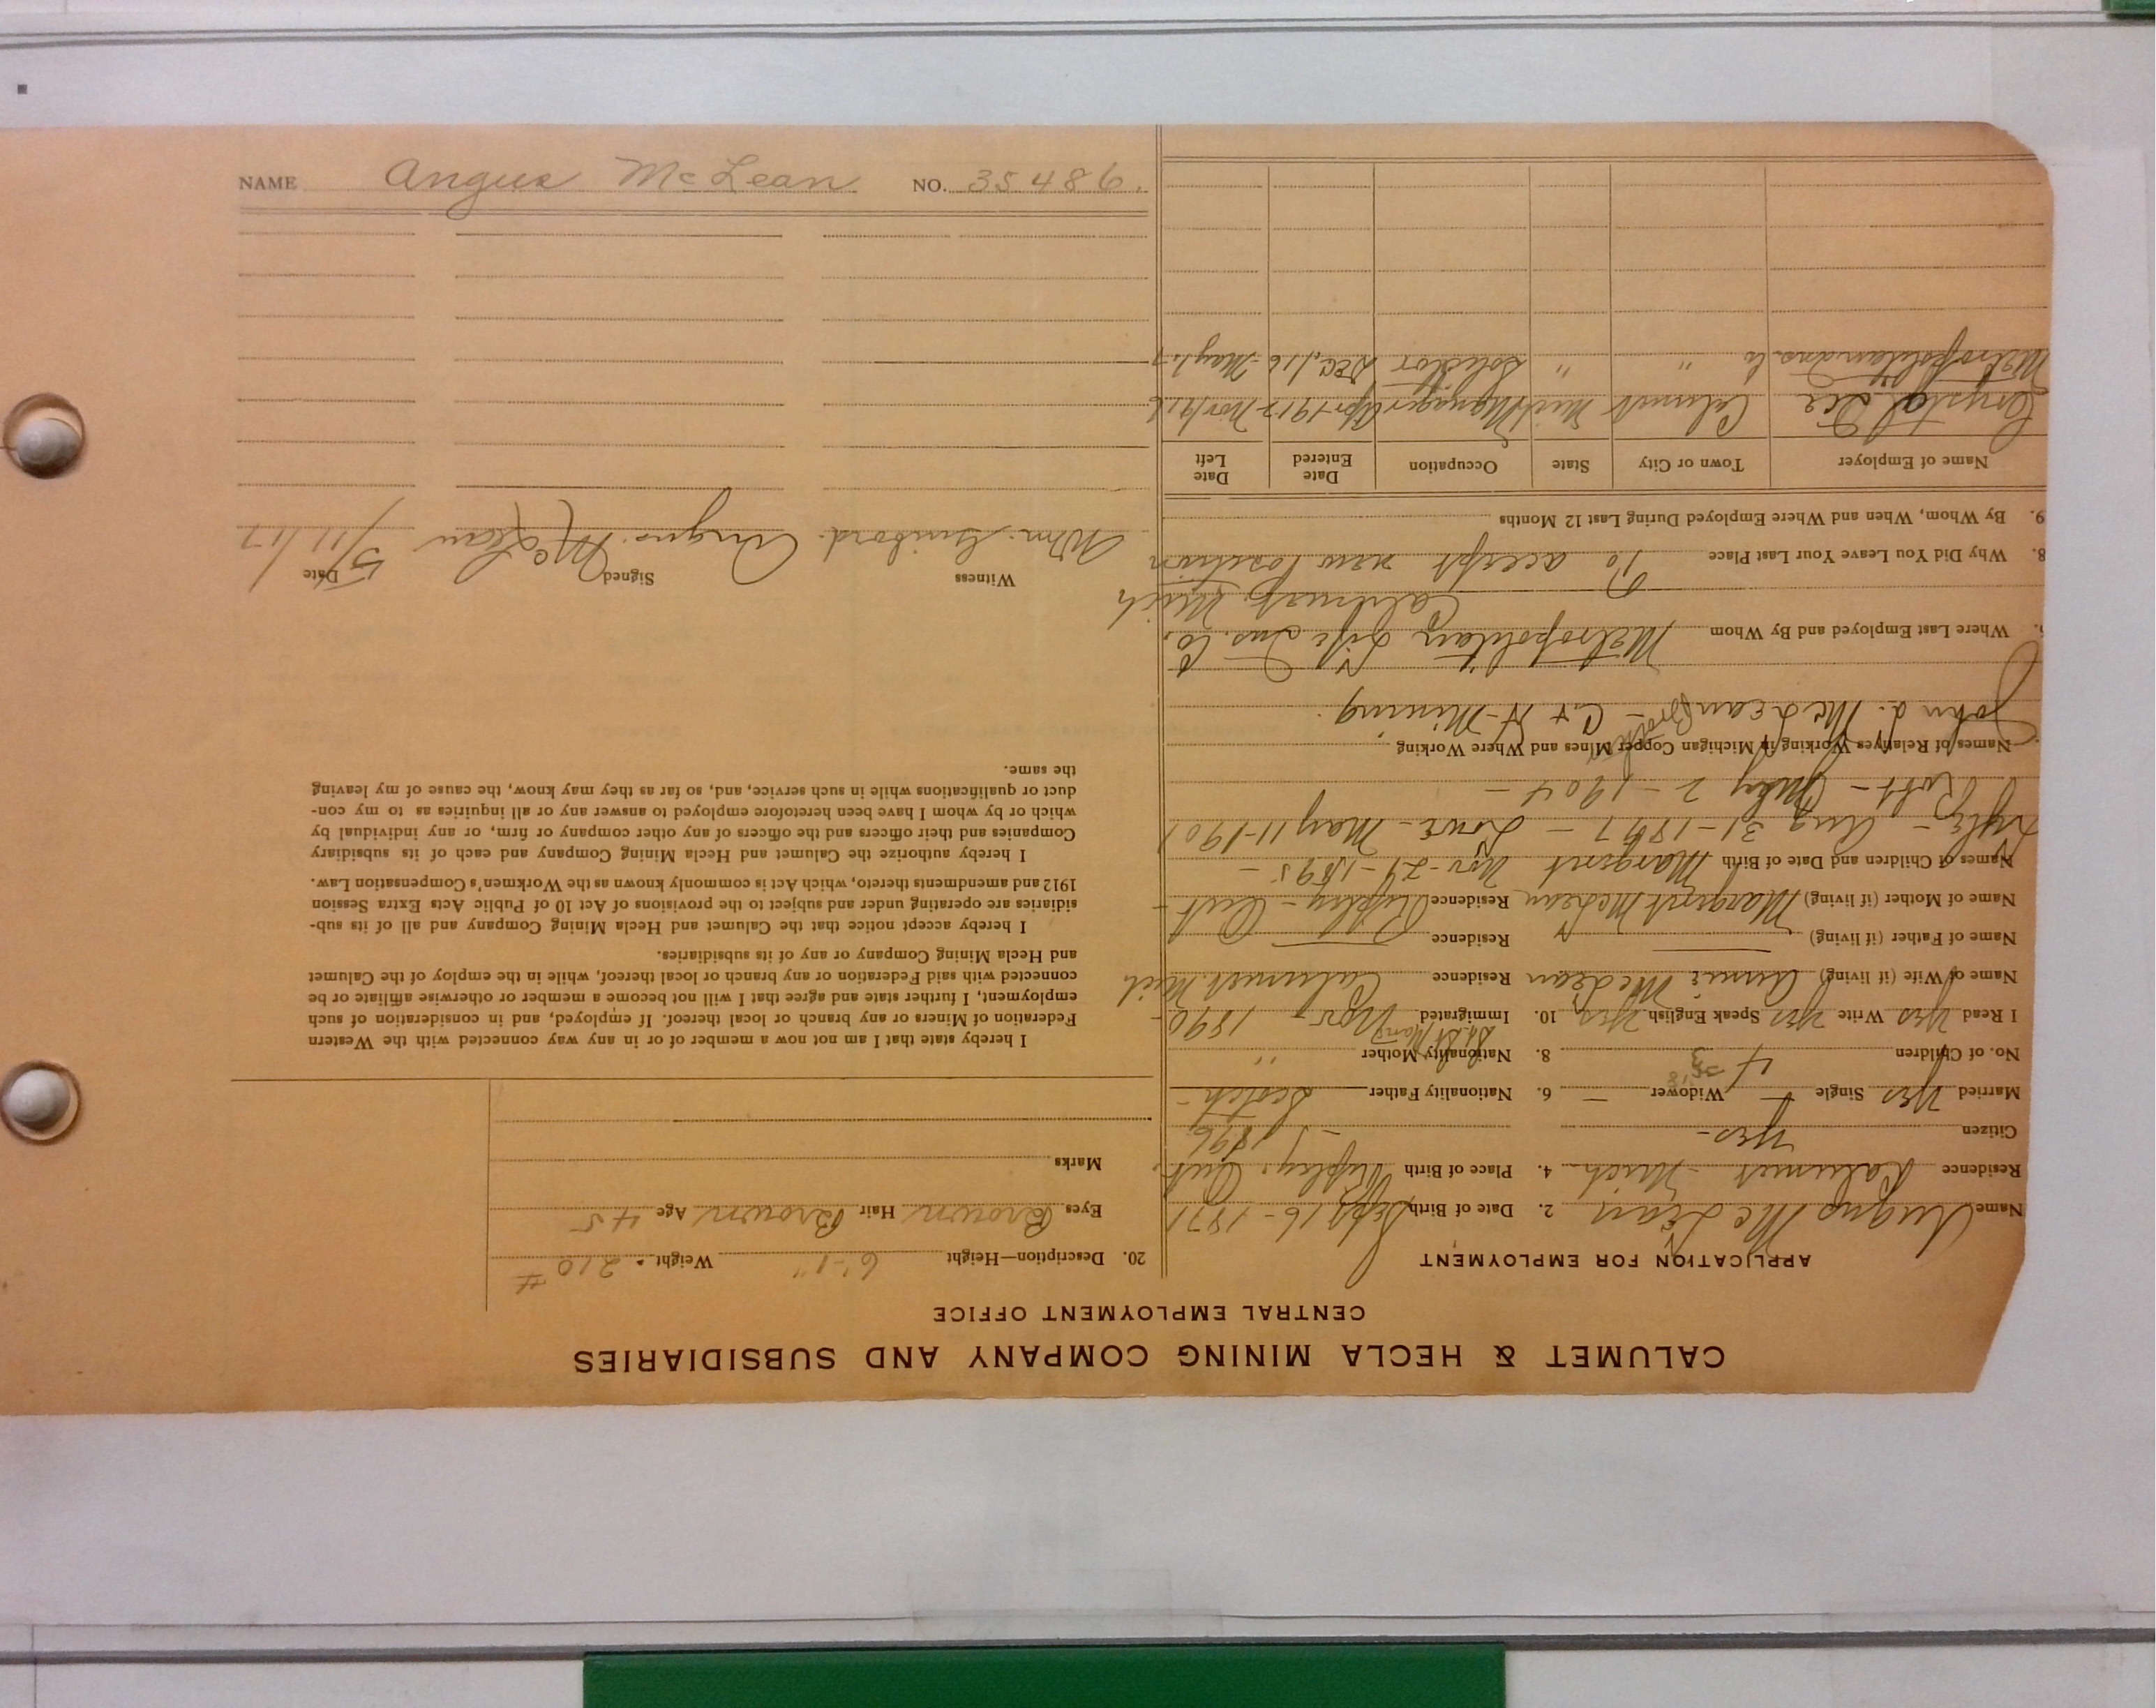 CALUMET & HECLA MINING COMPANY AND SUBSIDIARIES
CENTRAL EMPLOYMENT OFFICE
APPLICATION FOR EMPLOYMENT
Name Angus McLean 2. Date of Birth Sept 16-1871
Residence Calumet Mich. 4. Place of Birth Ripley, Ont.
Citizen Yes- 1896
Married Yes Single - Widower - 6. Nationality Father Scotch-
No. of Children 4 8. Nationality Mother "
I Read Yes Write Yes Speak English Yes 10. Immigrated Nov- 1890-
Name of Wife (if living) Annie McLean Residence Calumet Mich
Name of Father (if living) Residence
Name of Mother (if living) Margaret McLean Residence Ripley-Ont-
Names of Children and Date of Birth Margaret Nov-29-1895-
Aug 31-1897- May 11-1901
Robt- July 2-1904-
Names of Relatives Working in Michigan Copper Mines and Where Working
John A. McLean Brother - C + H-Mining.
Where Last Employed and By Whom Metropolitan Life Ins. Co.
Calumet, Mich
8. Why Did You Leave Your Last Place To accept new Position
9. By Whom, When and Where Employed During Last 12 Months
Name of Employer Town or City State Occupation Date Entered Date Left
Crystal Ice Calumet Mich Manager Apr-1912 Nov/916
Metropolitan Ins Co " " Solicitor Dec/16 May 1-17
20. Description—Height 6'-1" Weight 210 #
Eyes Brown Hair Brown Age 45
Marks
I hereby state that I am not now a member of or in any way connected with the Western
Federation of Miners or any branch or local thereof. If employed, and in consideration of such
employment, I further state and agree that I will not become a member or otherwise affiliate or be
connected with said Federation or any branch or local thereof, while in the employ of the Calumet
and Hecla Mining Company or any of its subsidiaries.
I hereby accept notice that the Calumet and Hecla Mining Company and all of its sub-
sidiaries are operating under and subject to the provisions of Act 10 of Public Acts Extra Session
1912 and amendments thereto, which Act is commonly known as the Workmen's Compensation Law.
I hereby authorize the Calumet and Hecla Mining Company and each of its subsidiary
Companies and their officers and the officers of any other company or firm, or any individual by
which or by whom I have been heretofore employed to answer any or all inquiries as to my con-
duct or qualifications while in such service, and, so far as they may know, the cause of my leaving
the same.
Witness Signed Date
Wm. Guibord. Angus McLean 5/11/17
NAME Angus McLean NO. 35486.